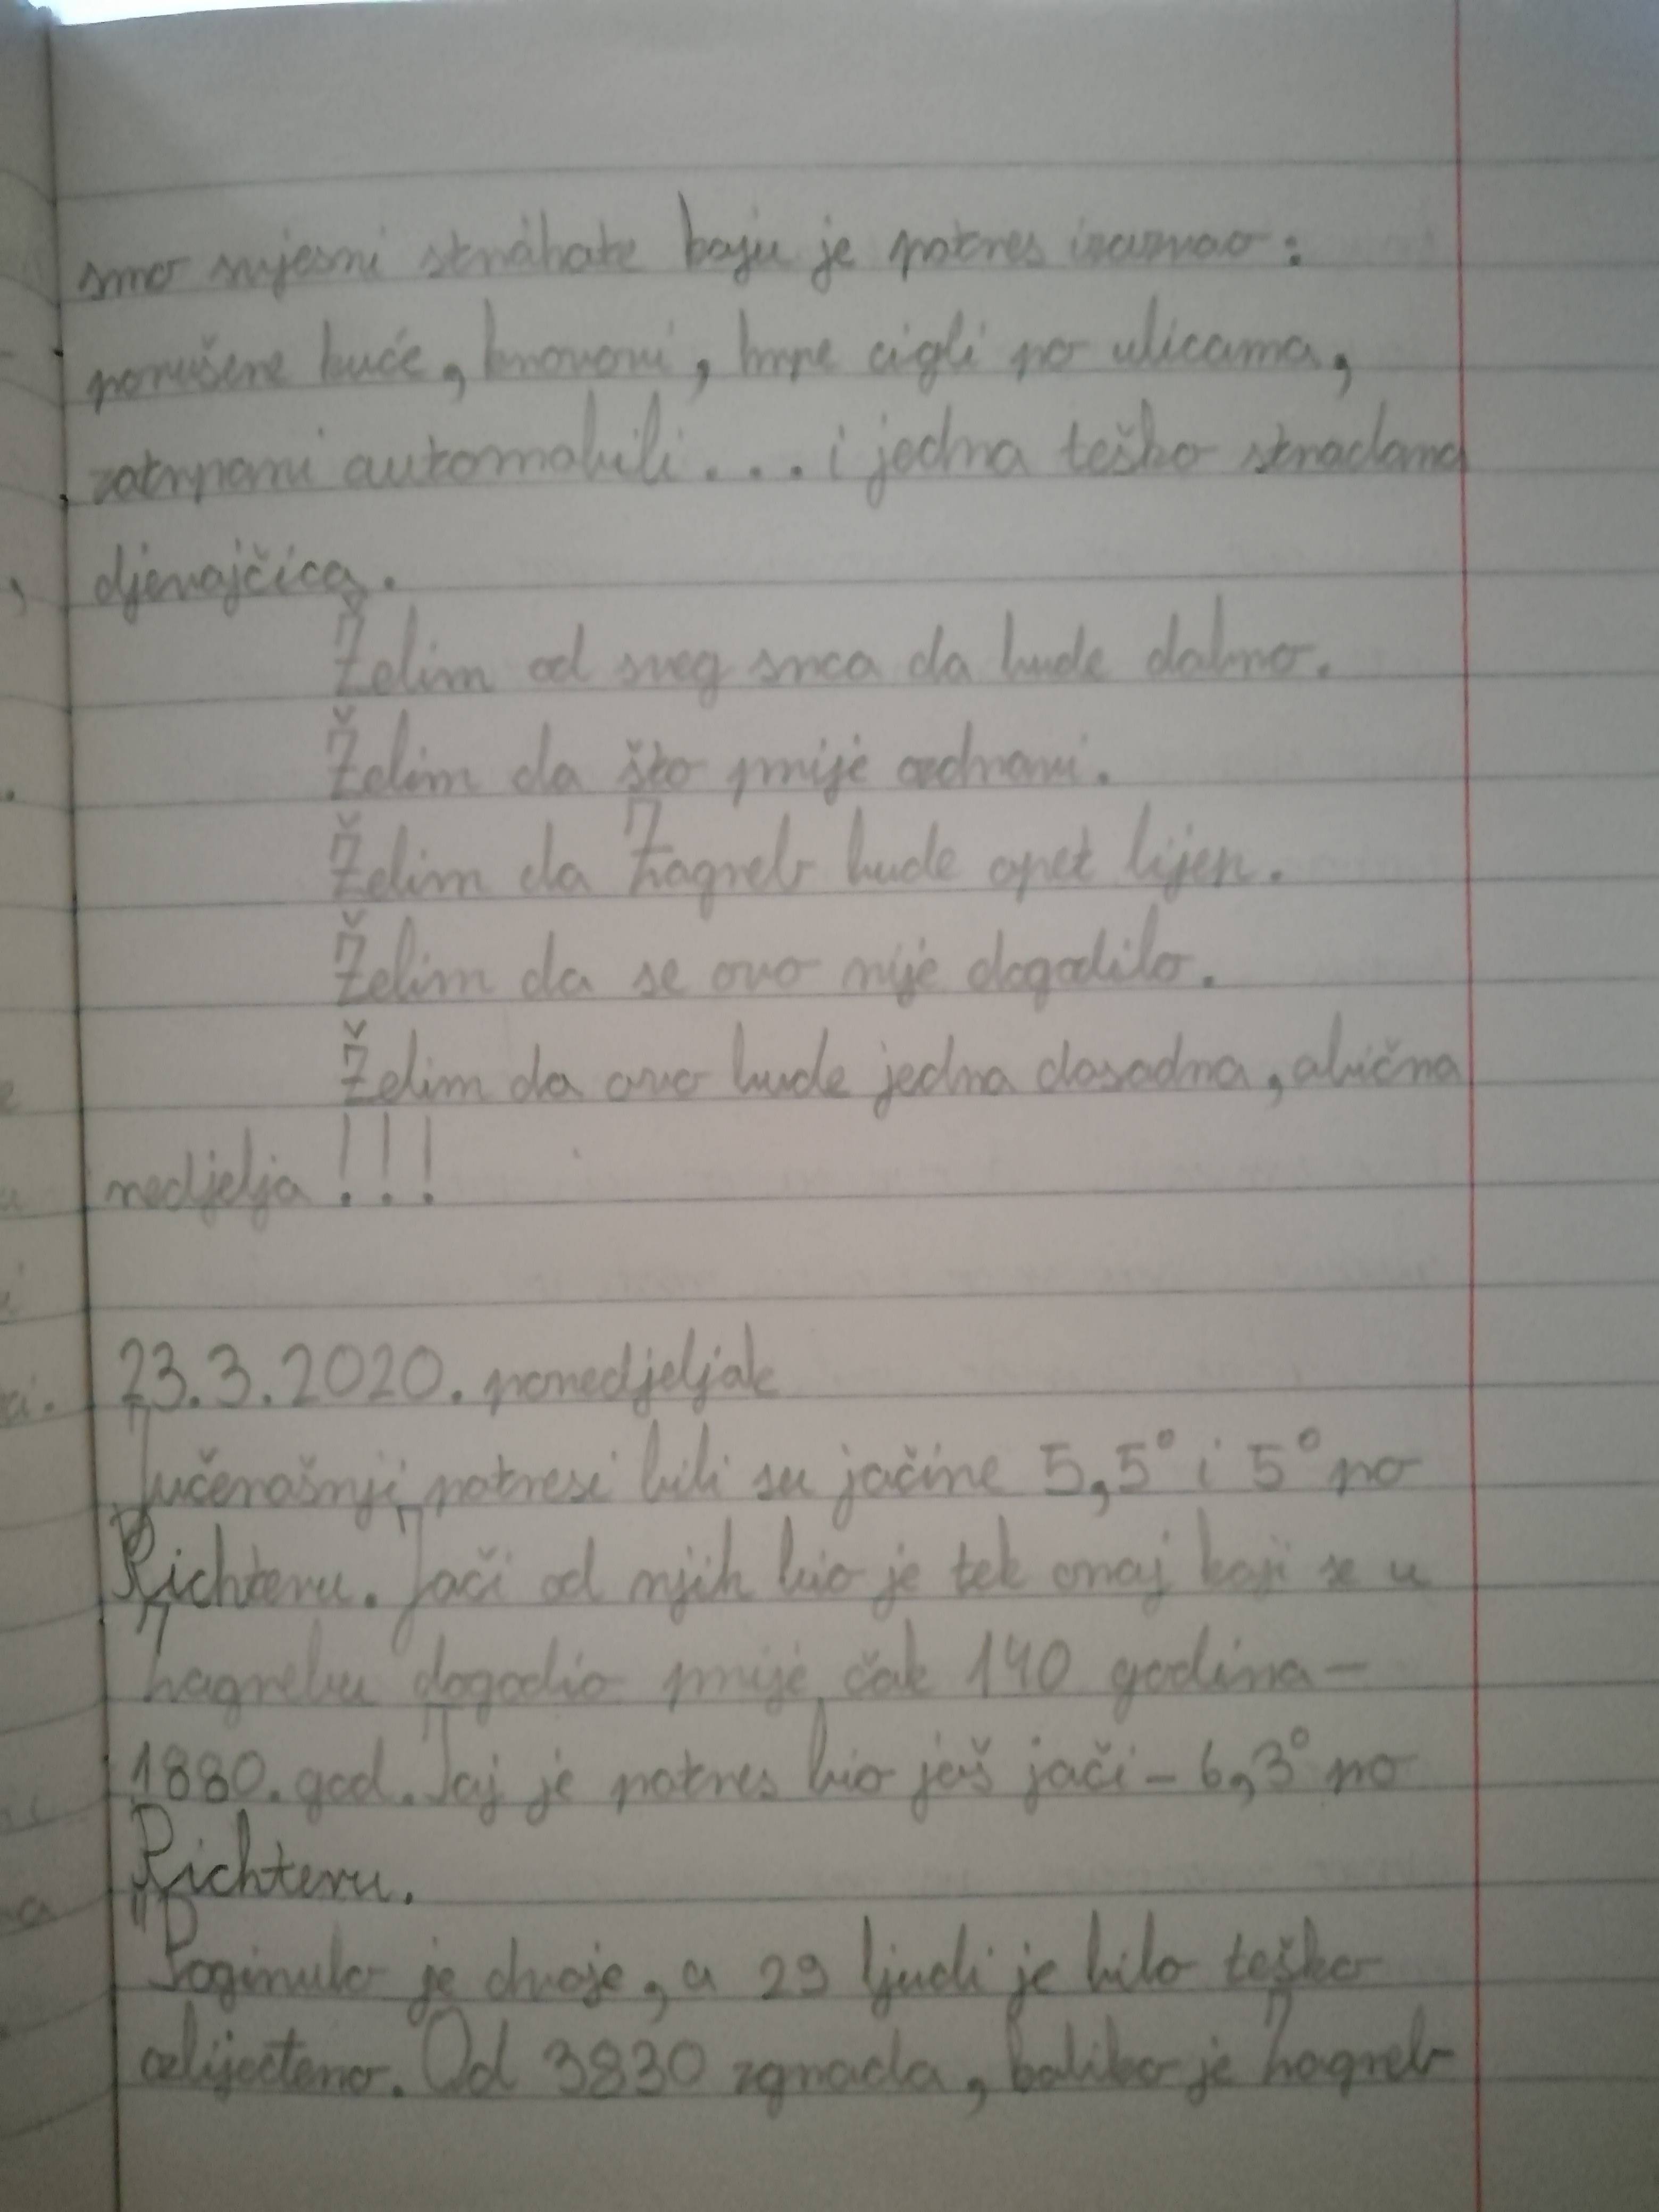 smo svjesni strahote koju je potres izazvao:
porušene kuće, krovovi, hrpe cigli po ulicama,
zatrpani automobili... i jedna teško stradana
djevojčica.
Želim od sveg srca da bude dobro.
Želim da što prije ozdravi.
Želim da Zagreb bude opet lijep.
Želim da se ovo nije dogodilo.
Želim da ovo bude jedna dosadna, obična
nedjelja!!!
23.3.2020. ponedjeljak
Jučerašnji potresi bili su jačine 5,5° i 5° po
Richteru. Jači od njih bio je tek onaj koji se u
Zagrebu dogodio prije čak 140 godina-
1880. god. Taj je potres bio još jači - 6,3° po
Richteru.
Poginulo je dvoje, a 29 ljudi je bilo teško
ozlijeđeno. Od 3830 zgrada, koliko je Zagreb